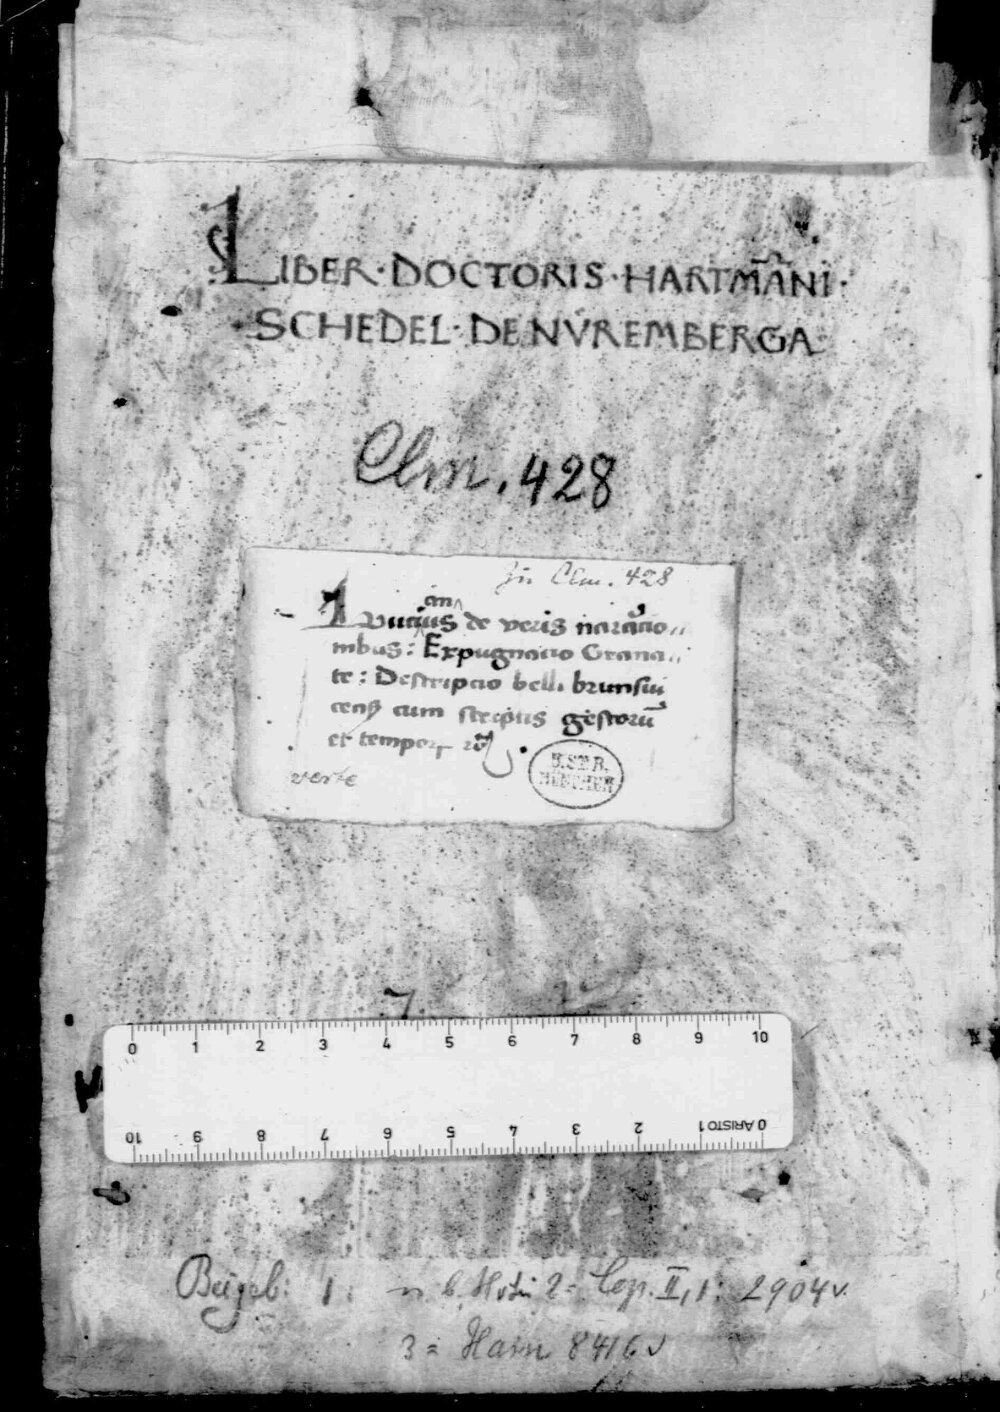 LIBER·DOCTORIS·HARTM̄ĀNI·
·SCHEDEL·DE NVREMBERGA·
Clm. 428
zu Clm. 428
an
Lucius de veris narracio
nibus: Expugnatio Grana
te: Descripcio belli brunswi
cens cum scriptis gestorū
et tempor
verte
B.ST.B.
MÜNCHEN
7
0 1 2 3 4 5 6 7 8 9 10
0 ARISTO 1 2 3 4 5 6 7 8 9 10
Beigeb: 1: 2 = Cop. II, 1: 2904 v.
3 = Hain 8416 v